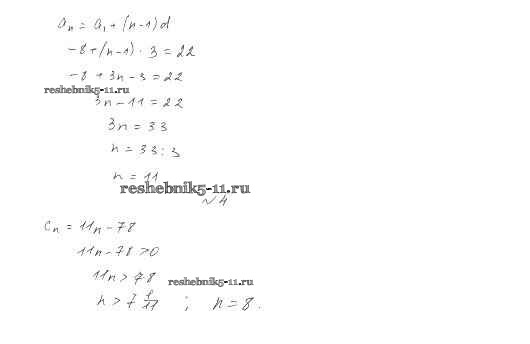 aₙ = a₁ + (n-1)d
-8 + (n-1) · 3 = 22
-8 + 3n - 3 = 22
reshebnik5-11.ru
3n - 11 = 22
3n = 33
n = 33 : 3
n = 11
reshebnik5-11.ru
№ 4
cₙ = 11n - 78
11n - 78 > 0
11n > 78
reshebnik5-11.ru
n > 7 1/11 ; n = 8.